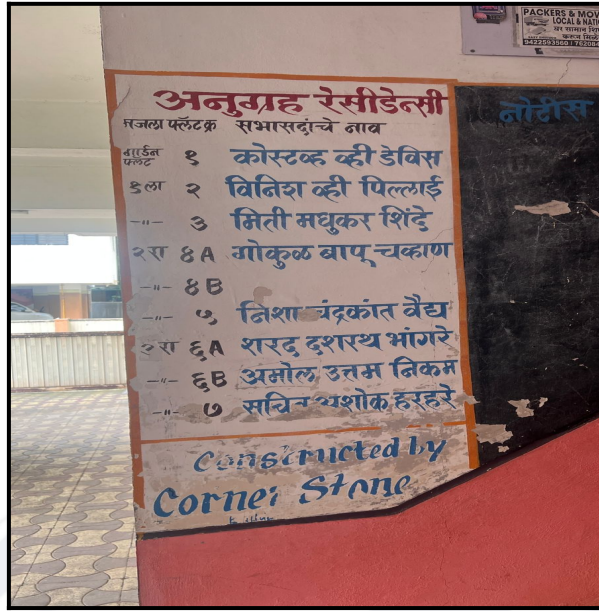 PACKERS & MOV
LOCAL & NATI
घर सामान शि
करून मिळे
9422593560 | 76208
अनुग्रह रेसीडेन्सी
मजला फ्लॅट क्र सभासदांचे नाव
गार्डन फ्लॅट १ कोस्टव्ह व्ही डेविस
१ला २ विनिश व्ही पिल्लाई
-"- ३ मिती मधुकर शिंदे
२रा ४A गोकुळ बापू चव्हाण
-"- ४B
-"- ५ निशा चंद्रकांत वैद्य
३रा ६A शरद दशरथ भांगरे
-"- ६B अमोल उत्तम निकम
-"- ७ सचिन अशोक हरहरे
Constructed by
Corner Stone
नोटीस